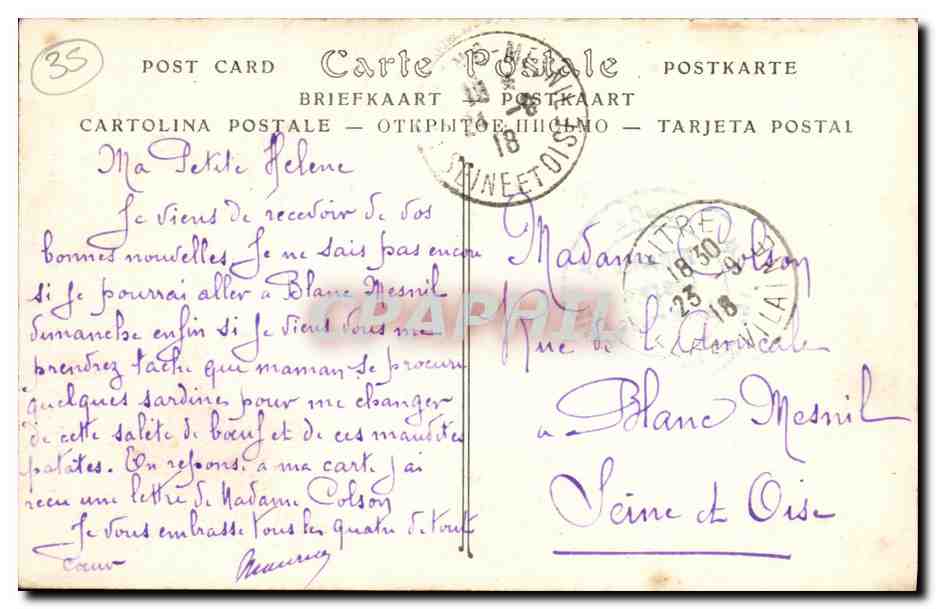 35
POST CARD Carte Postale POSTKARTE
BRIEFKAART — POSTKAART
CARTOLINA POSTALE — ОТКРЫТОЕ ПИСЬМО — TARJETA POSTAL
Ma Petite Helene
Je viens de recevoir de vos
bonnes nouvelles. Je ne sais pas encore
si je pourrai aller à Blanc Mesnil
dimanche enfin si je viens vous me
prendrez tache que maman se procure
quelques sardines pour me changer
de cette saleté de bœuf et de ces maudites
patates. En repons. a ma carte j'ai
recu une lettre de Madame Colson
Je vous embrasse tous les quatre de tout
cœur Maurice
Madame Colson
Rue de l'Amicale
a Blanc Mesnil
Seine et Oise
MESNIL
18
SEINE ET OISE
18 30
23 -9
18
CPAPHIL